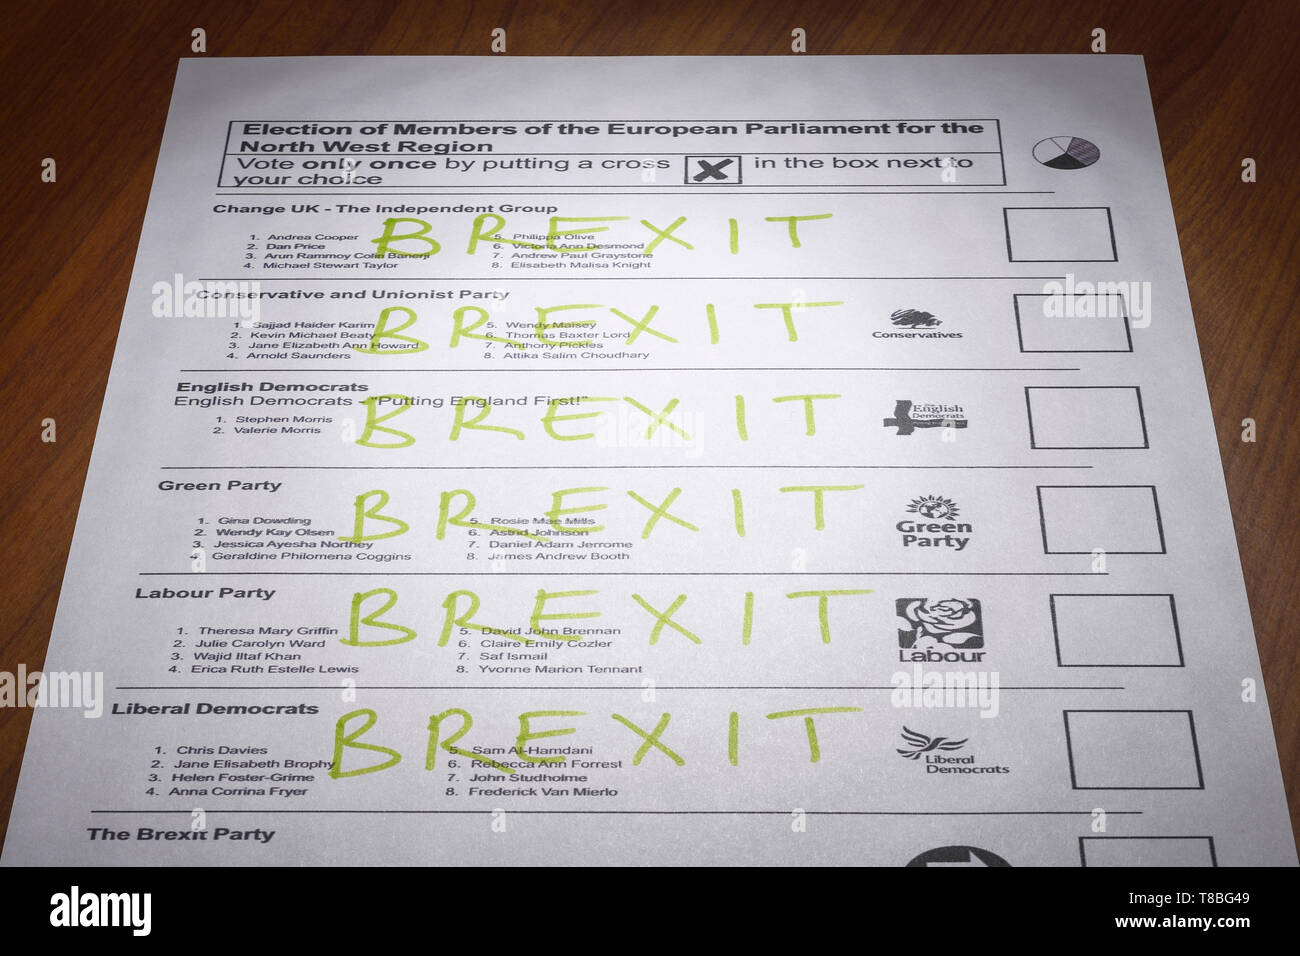 Election of Members of the European Parliament for the
North West Region
Vote only once by putting a cross X in the box next to
your choice
Change UK - The Independent Group
1. Andrea Cooper
2. Dan Price
3. Arun Rammoy Colin Banerji
4. Michael Stewart Taylor
5. Philippa Olive
6. Victoria Ann Desmond
7. Andrew Paul Graystone
8. Elisabeth Malisa Knight
BREXIT
Conservative and Unionist Party
1. Sajjad Haider Karim
2. Kevin Michael Beaty
3. Jane Elizabeth Ann Howard
4. Arnold Saunders
5. Wendy Maisey
6. Thomas Baxter Lord
7. Anthony Pickles
8. Attika Salim Choudhary
BREXIT
Conservatives
English Democrats
English Democrats - "Putting England First!"
1. Stephen Morris
2. Valerie Morris
BREXIT
The
English
Democrats
Green Party
1. Gina Dowding
2. Wendy Kay Olsen
3. Jessica Ayesha Northey
4. Geraldine Philomena Coggins
5. Rosie Mae Mills
6. Astrid Johnson
7. Daniel Adam Jerrome
8. James Andrew Booth
BREXIT
Green
Party
Labour Party
1. Theresa Mary Griffin
2. Julie Carolyn Ward
3. Wajid Iltaf Khan
4. Erica Ruth Estelle Lewis
5. David John Brennan
6. Claire Emily Cozler
7. Saf Ismail
8. Yvonne Marion Tennant
BREXIT
Labour
Liberal Democrats
1. Chris Davies
2. Jane Elisabeth Brophy
3. Helen Foster-Grime
4. Anna Corrina Fryer
5. Sam Al-Hamdani
6. Rebecca Ann Forrest
7. John Studholme
8. Frederick Van Mierlo
BREXIT
Liberal
Democrats
The Brexit Party
alamy
alamy
Image ID: T8BG49
www.alamy.com